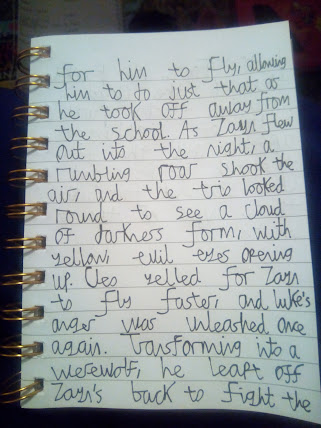 for him to fly, allowing
him to do just that as
he took off away from
the school. As Zayn flew
out into the night, a
rumbling roar shook the
air, and the trio looked
round to see a cloud
of darkness form, with
yellow evil eyes opening
up. Cleo yelled for Zayn
to fly faster, and Luke's
anger was unleashed once
again. Transforming into a
werewolf, he leapt off
Zayn's back to fight the